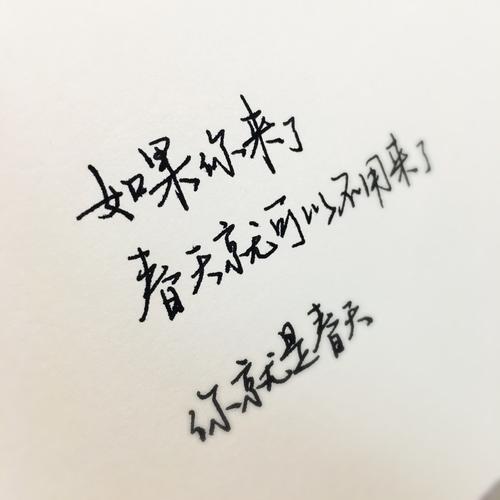 如果你来了
春天就可以不用来了
你就是春天